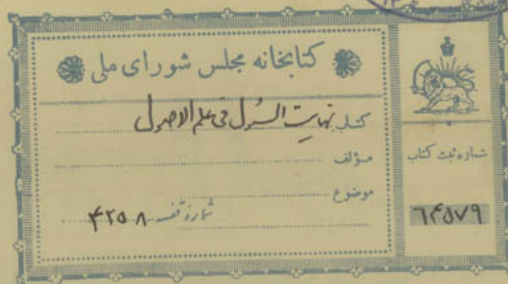 کتابخانه مجلس شورای ملی
کتاب نهایت السئول فی علم الاصول
مؤلف
موضوع
شماره قفسه ۴۲۵۰۸
شماره ثبت کتاب
۶۴۵۷۹